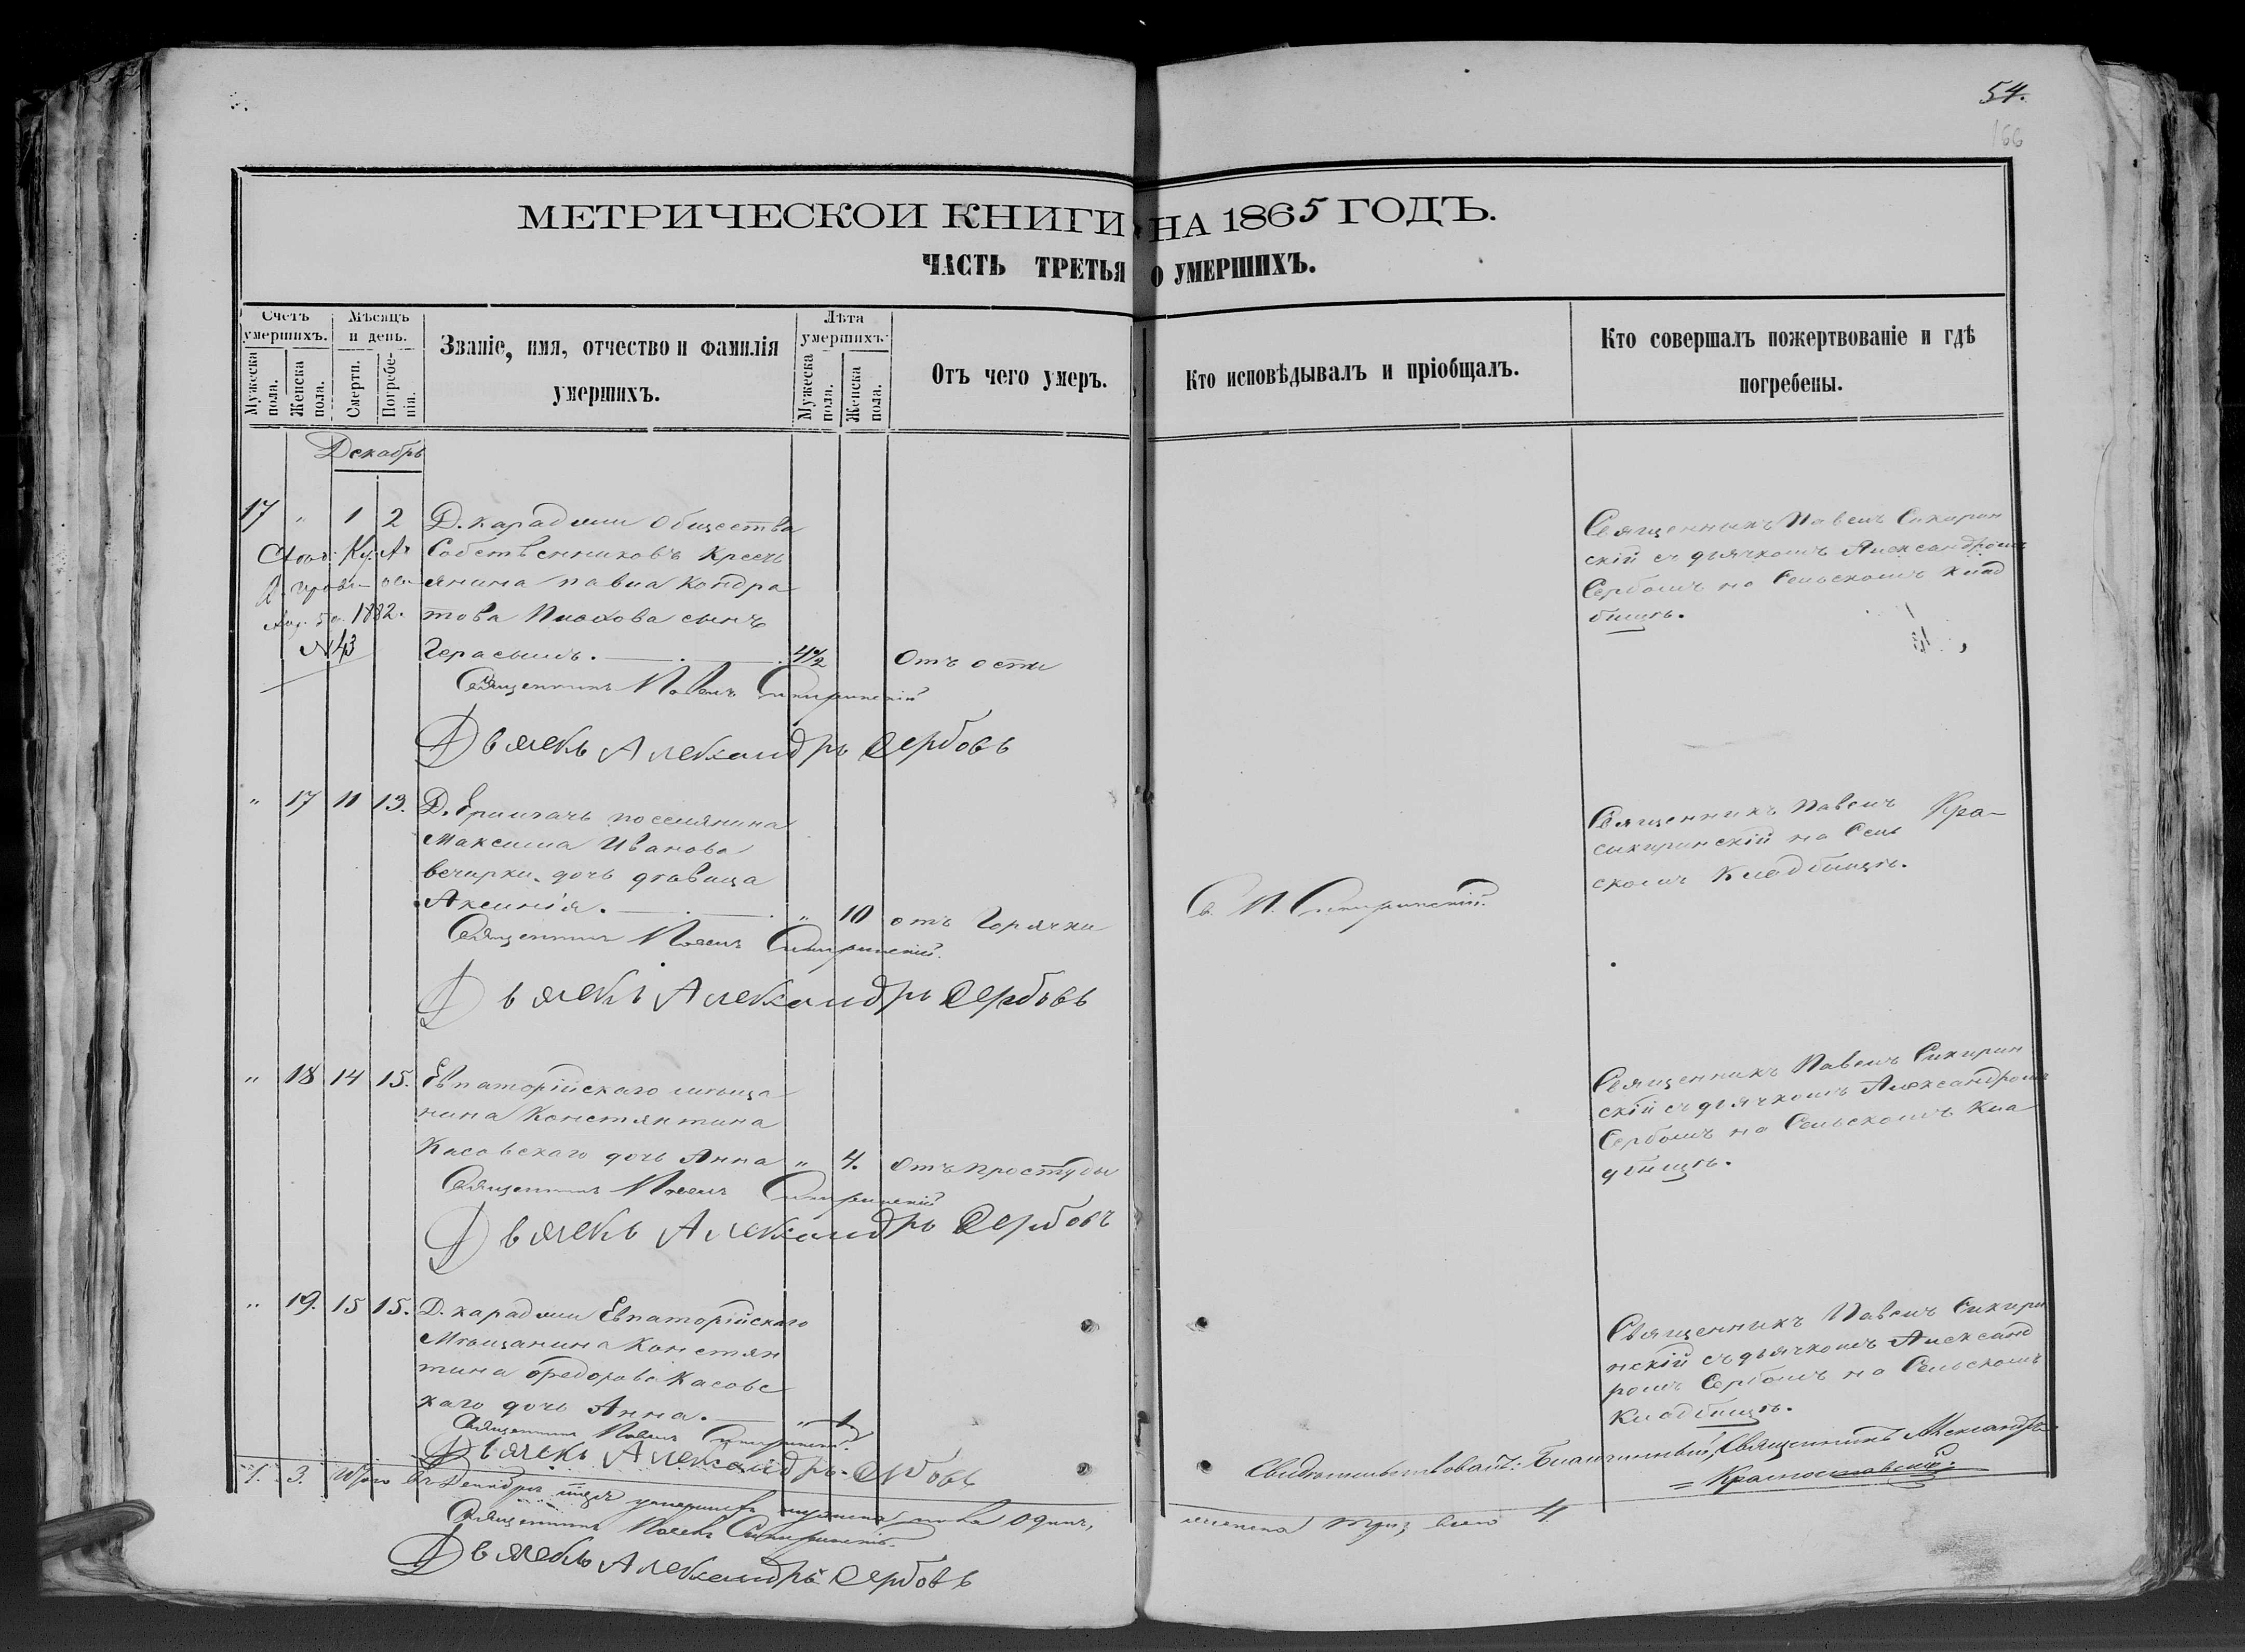 54.
166
МЕТРИЧЕСКОЙ КНИГИ НА 1865 ГОДЪ.
ЧАСТЬ ТРЕТЬЯ О УМЕРШИХЪ.
Счетъ умершихъ.
Мужеска пола.
Женска пола.
Мѣсяцъ и день.
Смерти.
Погребенія.
Званіе, имя, отчество и фамилія
умершихъ.
Лѣта умершихъ.
Мужеска пола.
Женска пола.
Отъ чего умеръ.
Кто исповѣдывалъ и пріобщалъ.
Кто совершалъ пожертвованіе и гдѣ
погребены.
Декабрь
17 " 1 2 Д. Караджи общества
Собственниковъ кресть
янина Павла Кондра
това сынъ
Герасимъ. 4 1/2 Отъ оспы
1882.
№ 43
Священникъ Павелъ Сикиринскій
Дьячекъ Александръ Сербовъ
Священникъ Павелъ Сикирин
скій съ дьячкомъ Александромъ
Сербомъ на Сельскомъ клад
бищѣ.
" 17 11 13. Д. поселянина
Максима Иванова
вечирки дочь дѣвица
Аксинія. " 10 отъ Горячки
Священникъ Павелъ Сикиринскій.
Дьячекъ Александръ Сербовъ
С. П. Сикиринскій.
Священникъ Павелъ
Сикиринскій на Сель
скомъ Кладбищѣ.
" 18 14 15. Евпаторійскаго мѣща
нина Константина
Касовскаго дочь Анна " 4. Отъ простуды
Священникъ Павелъ Сикиринскій
Дьячекъ Александръ Сербовъ
Священникъ Павелъ Сикирин
скій съ дьячкомъ Александромъ
Сербомъ на Сельскомъ Кла
дбищѣ.
" 19. 15 15. Д. Караджи Евпаторійскаго
Мѣщанина Констан
тина Федорова Касовс
каго дочь Анна. " 1
Священникъ Павелъ Сикиринскій.
Дьячекъ Александръ Сербовъ
Священникъ Павелъ Сикири
нскій съ дьячкомъ Александ
ромъ Сербомъ на Сельскомъ
Кладбищѣ.
Свидѣтельствовалъ: Благочинный, Священникъ Александръ
1. 3. Итого въ Декабрѣ умершихъ мужеска пола одинъ,
женска три, всего 4.
Священникъ Павелъ Сикиринскій.
Дьячекъ Александръ Сербовъ